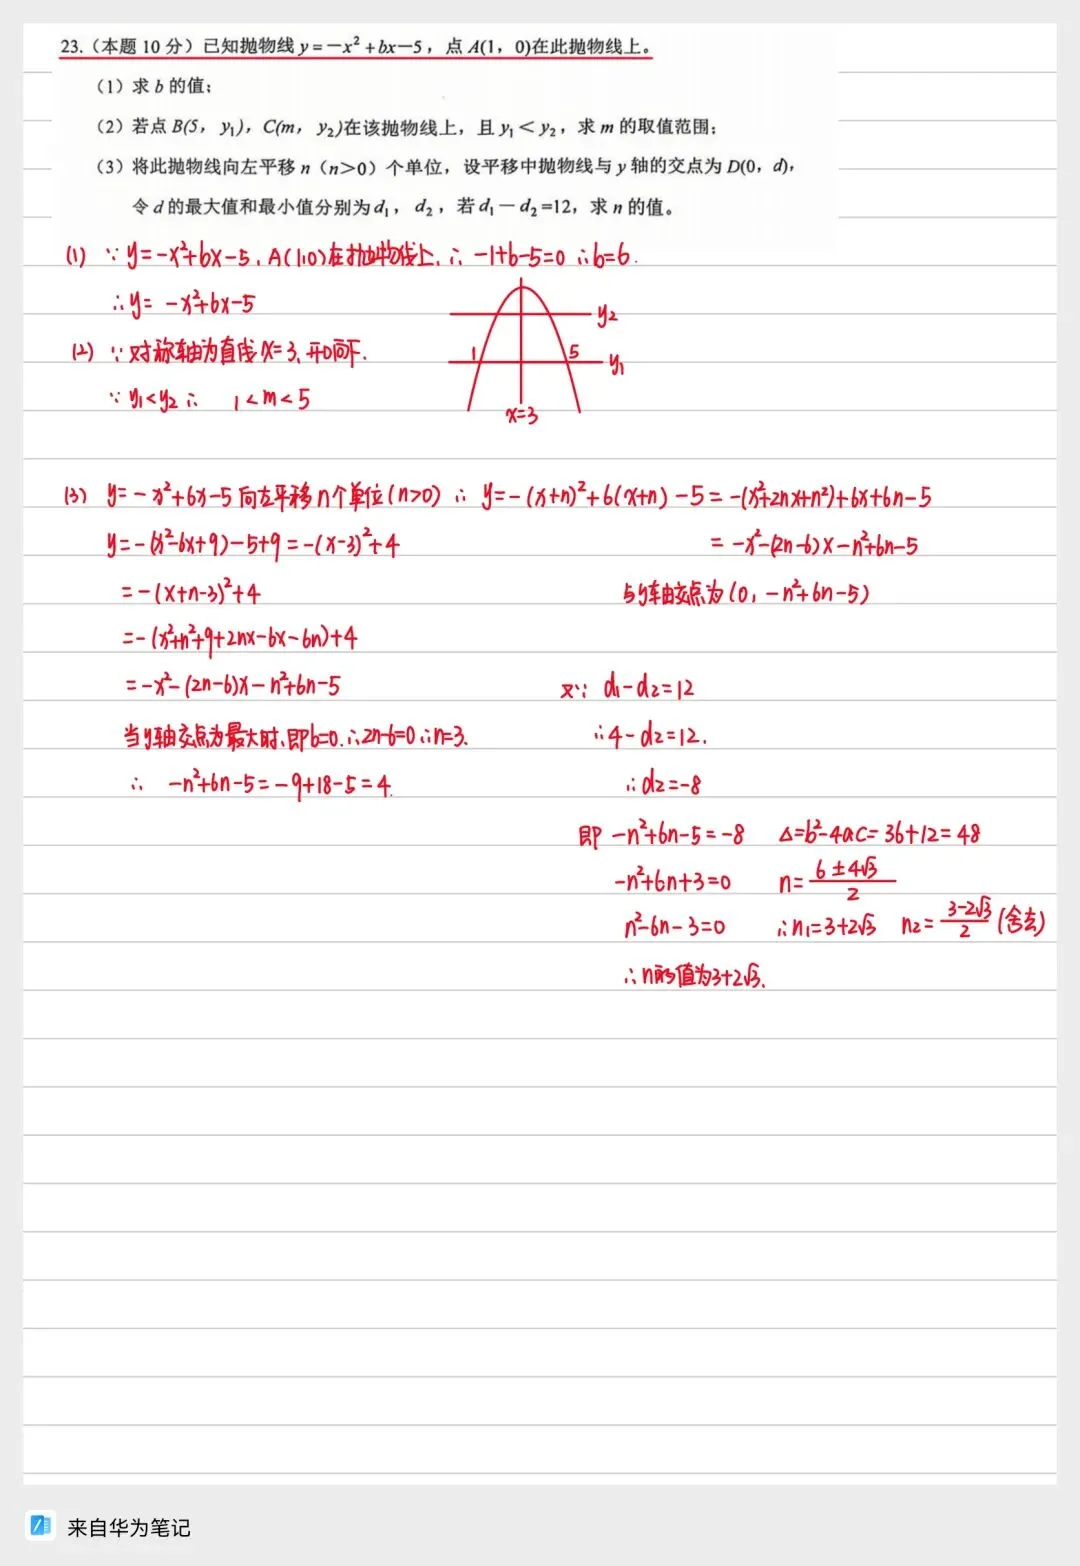 23.（本题 10 分）已知抛物线 y=－x²+bx－5，点 A(1，0)在此抛物线上。
（1）求 b 的值；
（2）若点 B(5，y₁)，C(m，y₂)在该抛物线上，且 y₁＜y₂，求 m 的取值范围；
（3）将此抛物线向左平移 n（n＞0）个单位，设平移中抛物线与 y 轴的交点为 D(0，d)，
令 d 的最大值和最小值分别为 d₁，d₂，若 d₁－d₂=12，求 n 的值。
(1) ∵ y=-x²+bx-5, A(1,0)在抛物线上, ∴ -1+b-5=0 ∴b=6.
∴y= -x²+6x-5
y₂
(2) ∵对称轴为直线x=3, 开口向下.
1 5 y₁
∵ y₁<y₂ ∴ 1<m<5
x=3
(3) y=-x²+6x-5向左平移n个单位(n>0) ∴ y=-(x+n)²+6(x+n)-5=-(x²+2nx+n²)+6x+6n-5
y=-(x²-6x+9)-5+9=-(x-3)²+4 = -x²-(2n-6)x-n²+6n-5
=-(x+n-3)²+4 与y轴交点为(0, -n²+6n-5)
=-(x²+n²+9+2nx-6x-6n)+4
=-x²-(2n-6)x-n²+6n-5 又∵ d₁-d₂=12
当y轴交点为最大时,即b=0.∴2n-6=0∴n=3. ∴4-d₂=12.
∴ -n²+6n-5=-9+18-5=4. ∴d₂=-8
即 -n²+6n-5=-8 Δ=b²-4ac=36+12=48
-n²+6n+3=0 n=(6±4√3)/2
n²-6n-3=0 ∴n₁=3+2√3 n₂=(3-2√3)/2 (舍去)
∴n的值为3+2√3.
来自华为笔记